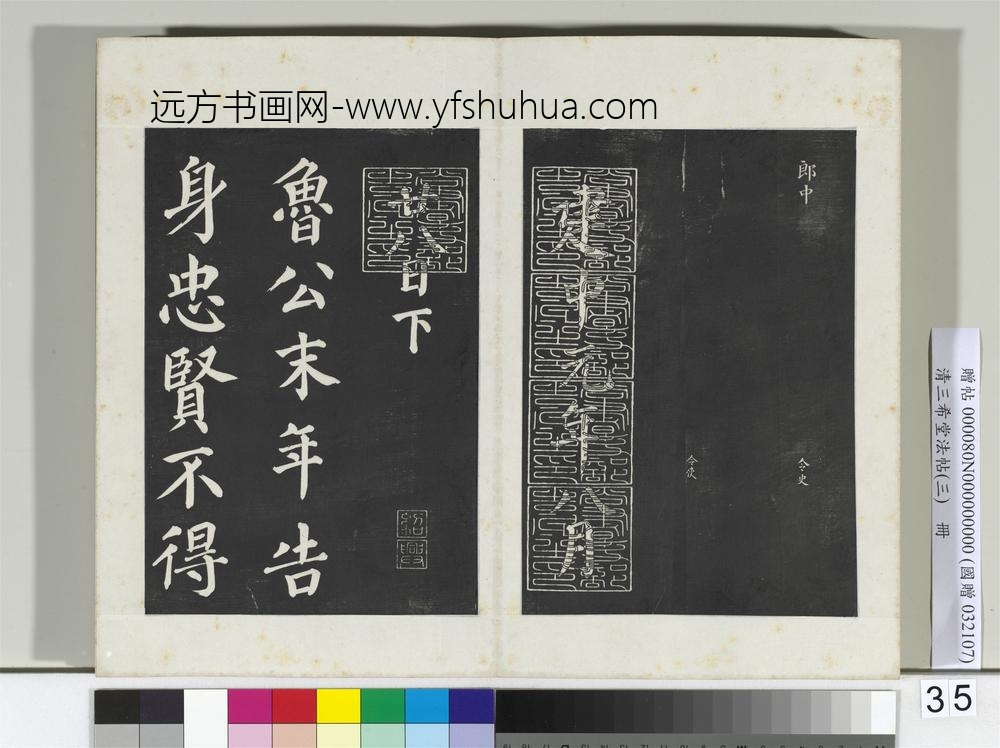 远方书画网-www.yfshuhua.com
郎中
令史
令史
建中元年八月
廿八日下
紹興
魯公末年告
身忠賢不得
贈帖 000080N000000000 (國贈 032107)
清三希堂法帖(三) 冊
35